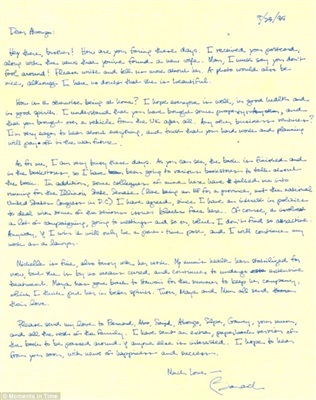 7/28/95
Dear Abongo:
Hey there, brother! How are you faring these days. I received your postcard,
along with the news that you've found a new wife. Man, I must say you don't
fool around! Please write and tell me more about her. A photo would also be
nice, although I have no doubts that she is beautiful.
How is it otherwise being at home? I hope everyone is well, in good health and
in good spirits. I understand that you have bought some property, and
that you brought over a vehicle from the US. Any other business ventures?
I'm very eager to hear about everything, and trust that your hard work and planning
will pay off in the near future.
As for me, I am very busy these days. As you can see the book is finished and
in the bookstores, so I have been going to various bookstores to talk about
the book. In addition, some colleagues of mine here have talked me into
running for the Illinois State Senate (like being an MP of a province, not the national
United States Congress in D.C.) I have agreed, since I have an interest in politics
to deal with some of the issues blacks face here. Of course, it involves
a lot of campaigning, going to meetings and so on, which I don't find so attractive.
Anyway, if I win it will only be a part-time post, and I will continue my
work as a lawyer.
Michelle is fine, also busy with her work. My mom's health has stabilized for
now, but she is by no means cured and continues to undergo extensive
treatment. Maya has gone back to Hawaii for the summer to keep her company,
which I think puts her in better spirits. Toot, Maya and Mom all send
their love.
Please send my love to Bernard, Abo, Sayid, Granny, your mum,
and all the rest of the family. I have sent an extra, paperback version of
the book to be passed around if anyone else is interested. I hope to hear
from you soon, with news of happiness and success.
Much Love -
Barack
© Moments in Time